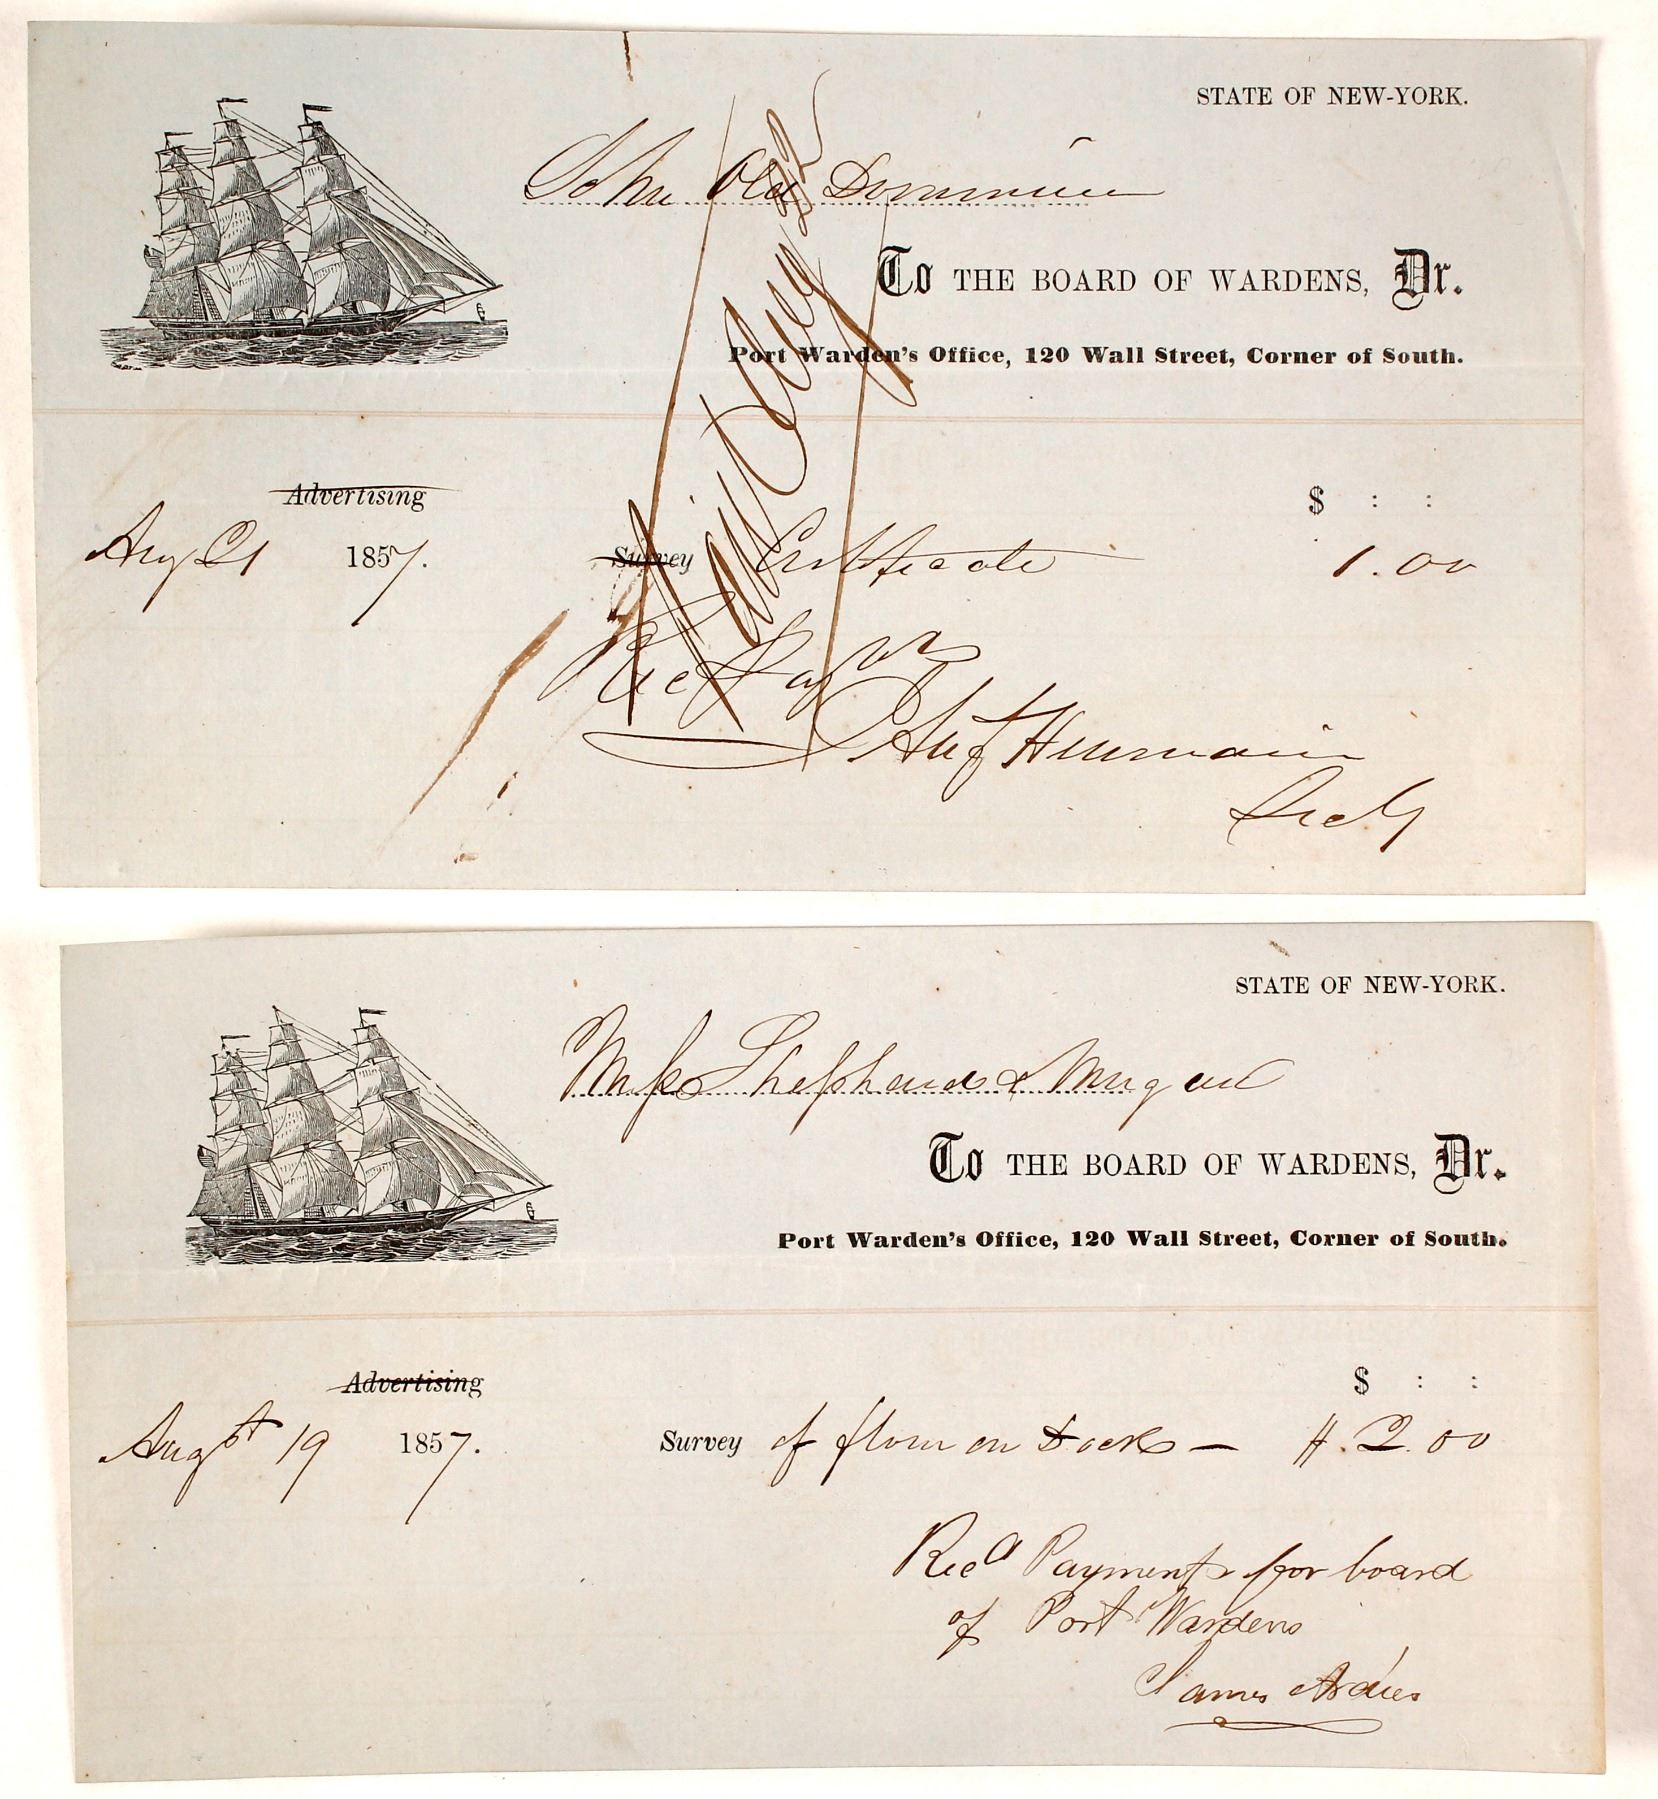 STATE OF NEW-YORK.
To THE BOARD OF WARDENS, Dr.
Port Warden's Office, 120 Wall Street, Corner of South.
Advertising
$ : :
Aug 21 1857. Survey Certificate 1.00
Rec Pay
Secy
STATE OF NEW-YORK.
To THE BOARD OF WARDENS, Dr.
Port Warden's Office, 120 Wall Street, Corner of South.
Advertising
$ : :
Augst 19 1857. Survey of flour on Dock — $.2.00
Recd Payment for board
of Port Wardens
James